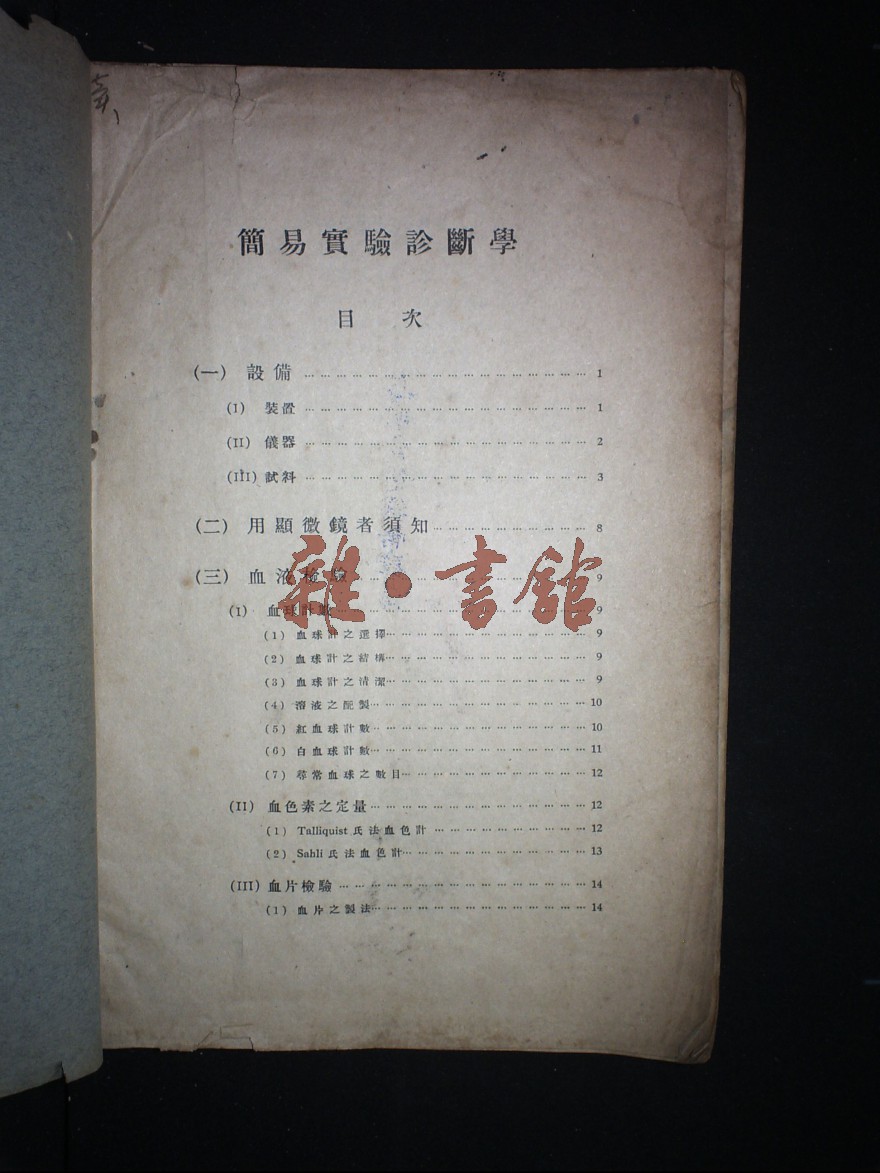 簡易實驗診斷學
目 次
(一) 設備 … 1
(I) 裝置 … 1
(II) 儀器 … 2
(III) 試料 … 3
(二) 用顯微鏡者須知 … 8
(三) 血液檢驗 … 9
雜·書館
(I) 血球計數 … 9
(1) 血球計之選擇 … 9
(2) 血球計之結構 … 9
(3) 血球計之清潔 … 9
(4) 溶液之配製 … 10
(5) 紅血球計數 … 10
(6) 白血球計數 … 11
(7) 尋常血球之數目 … 12
(II) 血色素之定量 … 12
(1) Talliquist 氏法血色計 … 12
(2) Sahli 氏法血色計 … 13
(III) 血片檢驗 … 14
(1) 血片之製法 … 14